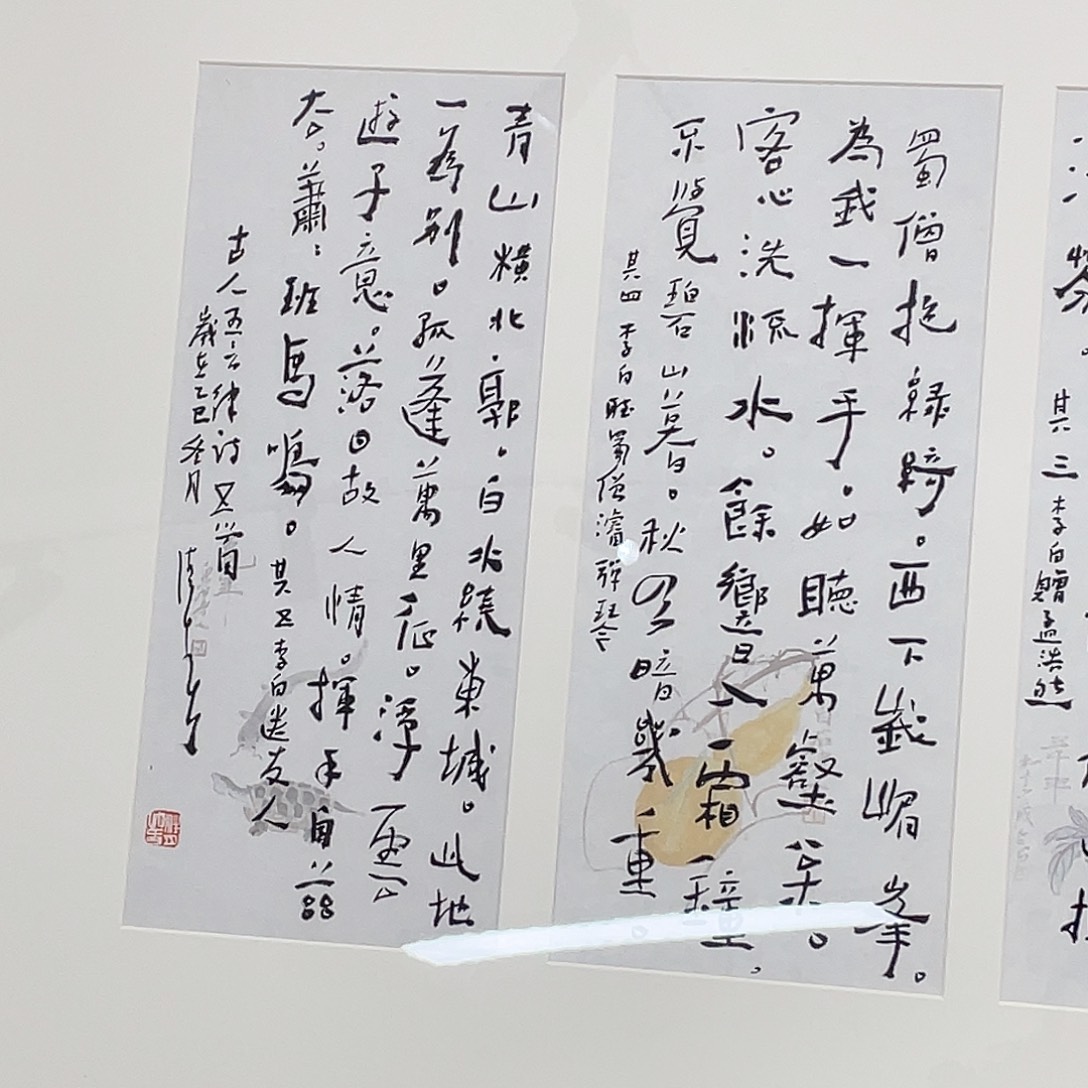 其三 李白贈孟浩然
蜀僧抱綠綺。西下峨嵋峯。
為我一揮手。如聽萬壑松。
客心洗流水。餘響入霜鐘，
不覺碧山暮。秋雲暗幾重。
其四 李白聽蜀僧濬彈琴
青山橫北郭。白水繞東城。此地
一為別。孤蓬萬里征。浮雲
遊子意。落日故人情。揮手自茲
去。蕭〻班馬鳴。其五李白送友人
古人五言律詩五首
歲在乙巳冬月